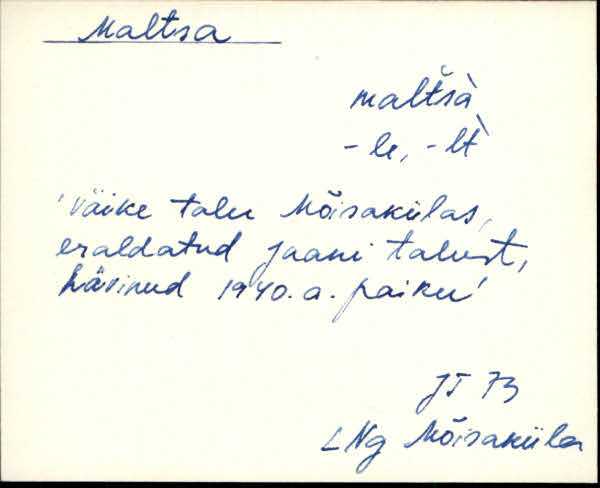 Maltsa
maltšà
-le, -lt̀
'Väike talu Mõisakülas,
eraldatud Jaani talust,
hävinud 1940. a. paiku'
JT 73
LNg Mõisaküla